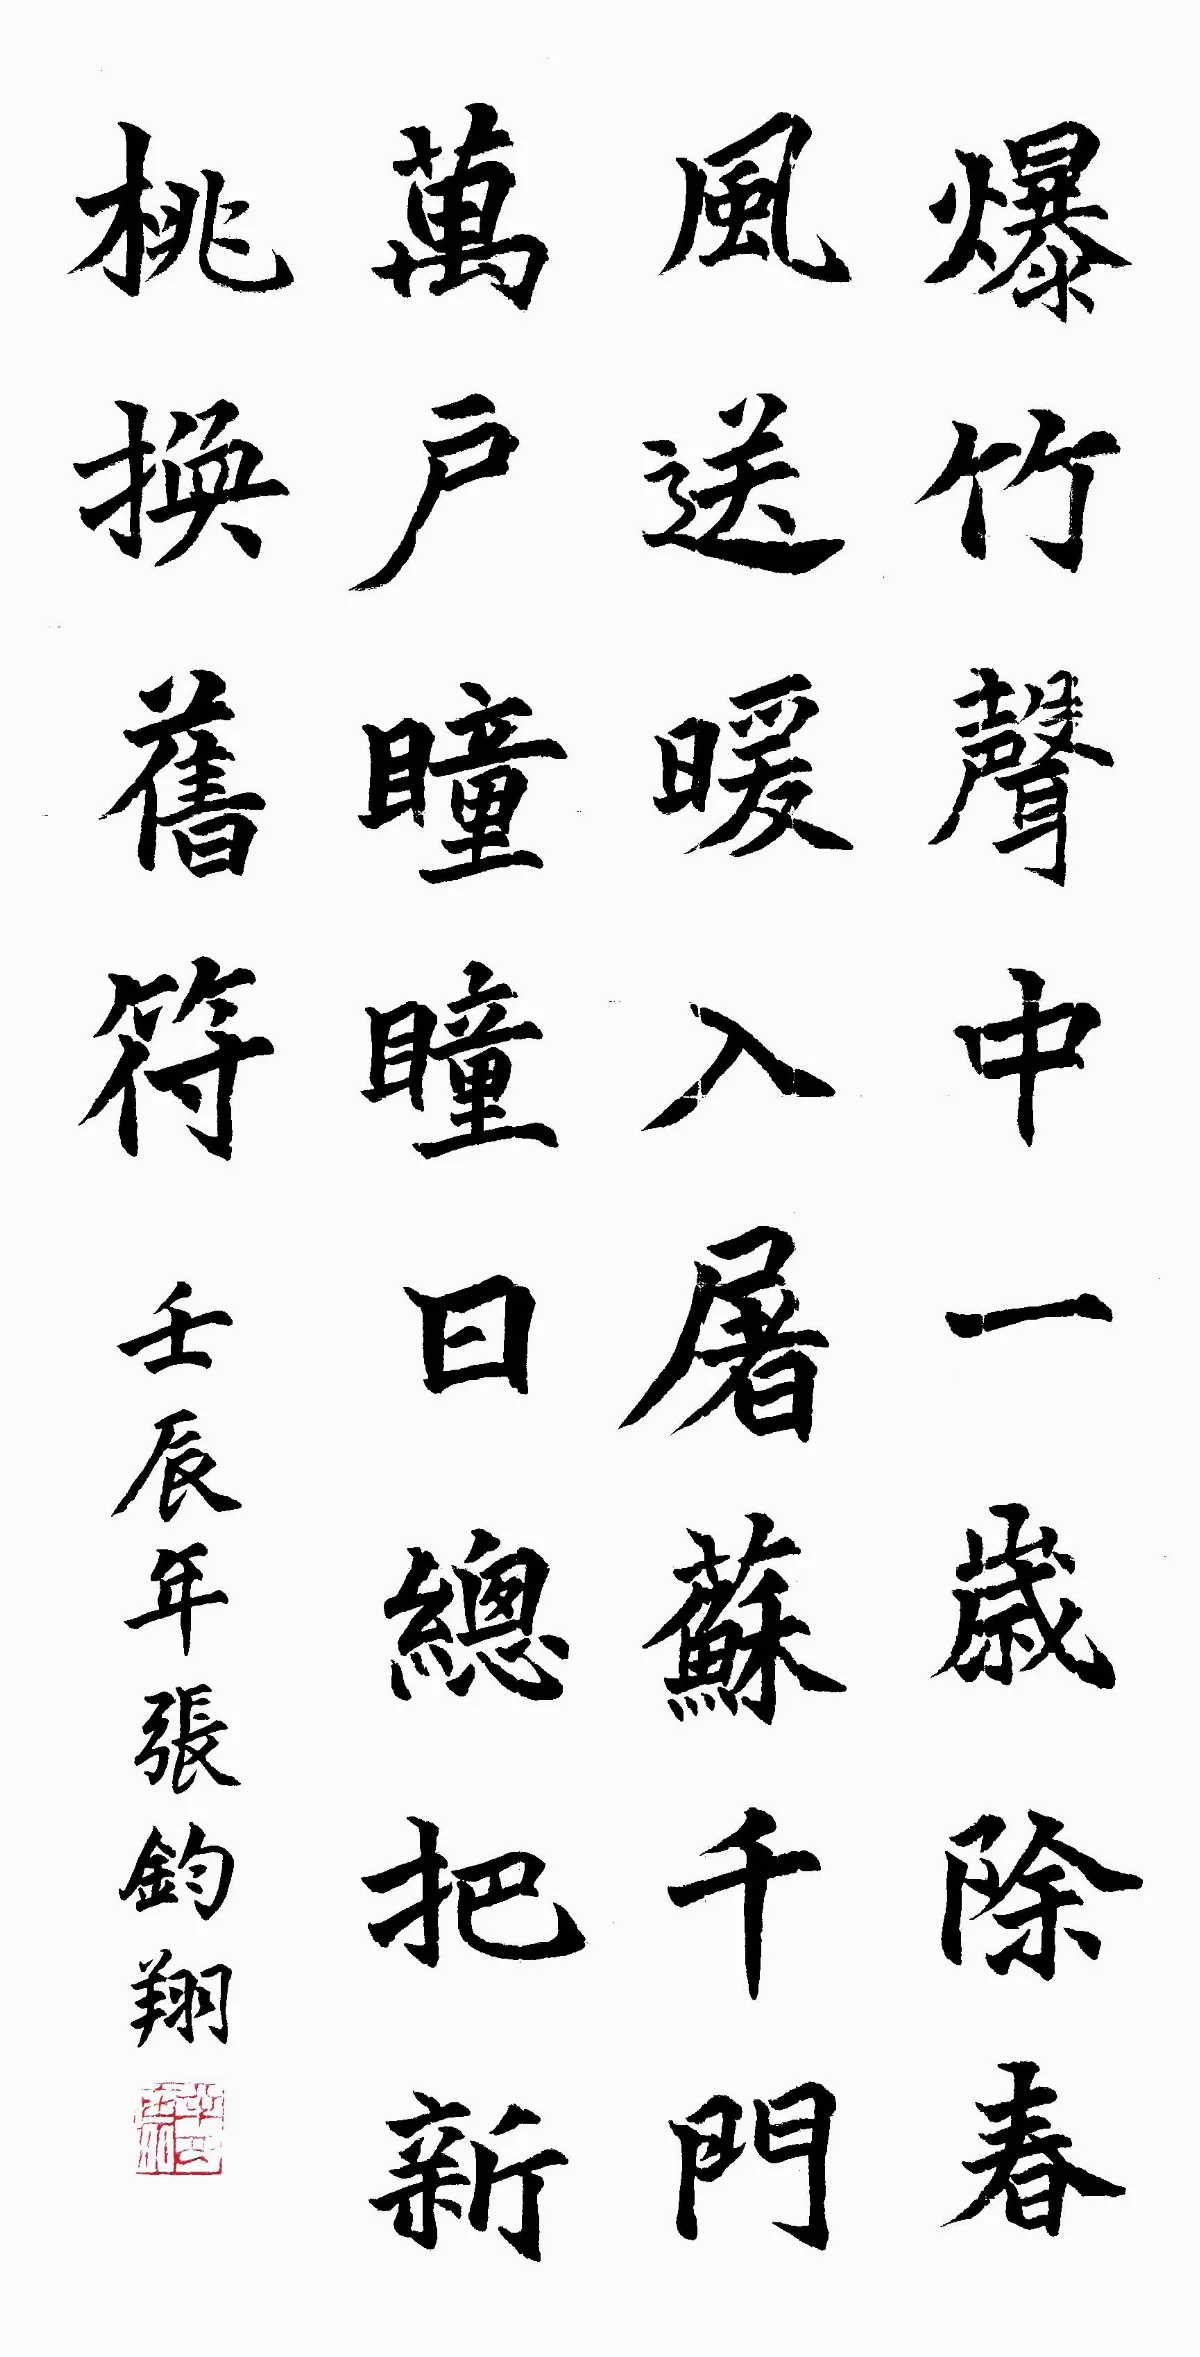 爆竹聲中一歲除春
風送暖入屠蘇千門
萬戶瞳瞳日總把新
桃換舊符
壬辰年張鈞翔